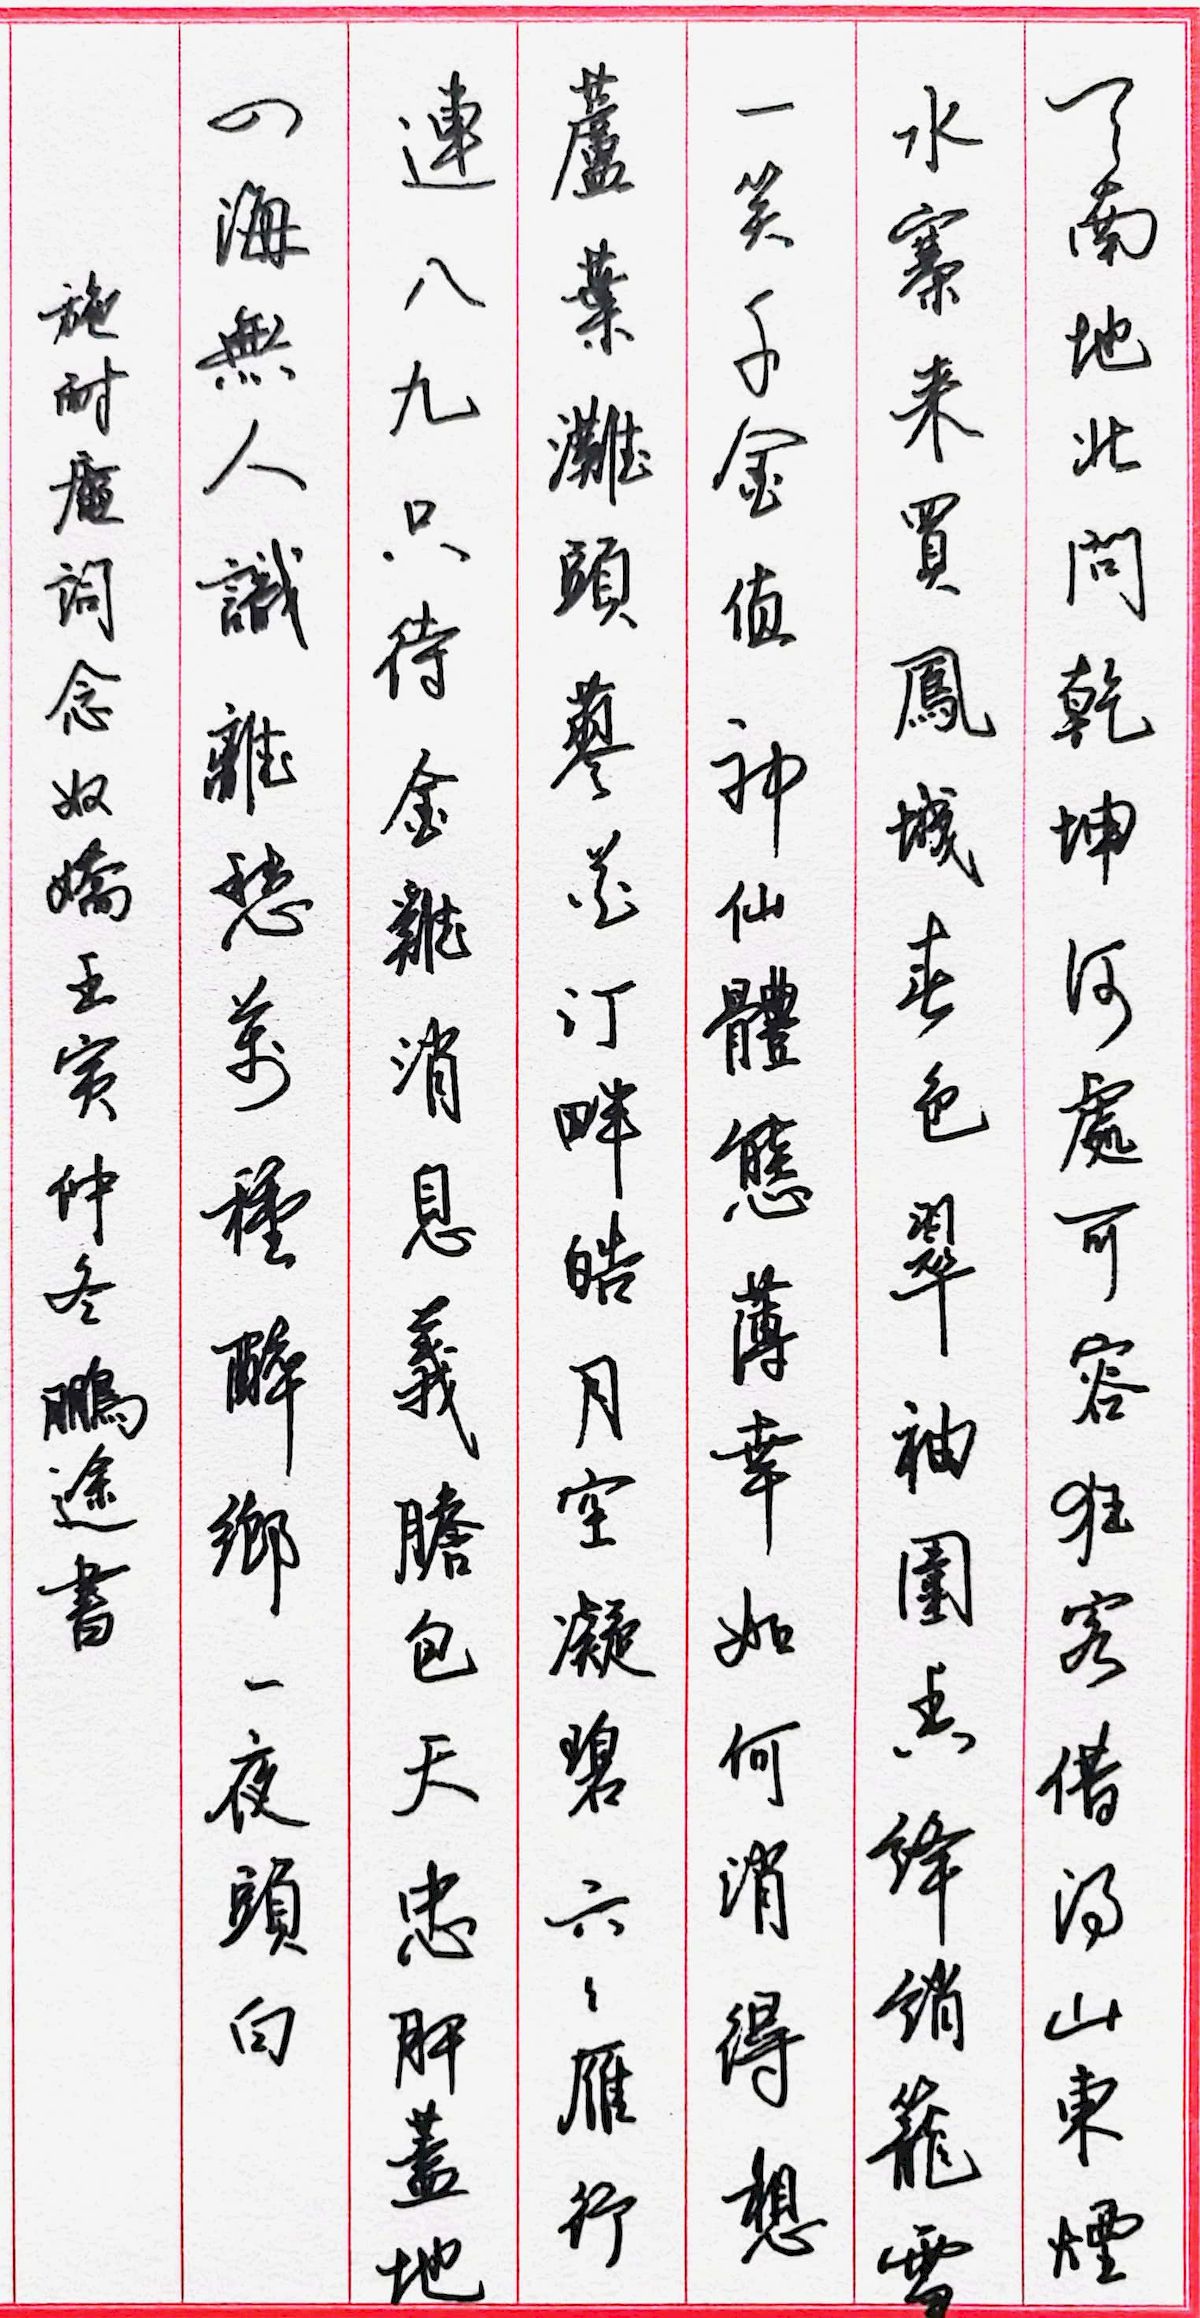 天南地北問乾坤何處可容狂客借得山東煙
水寨来買鳳城春色翠袖圍香絳綃籠雪
一笑千金值神仙體態薄幸如何消得想
蘆葉灘頭蓼花汀畔皓月空凝碧六々雁行
連八九只待金雞消息義膽包天忠肝蓋地
四海無人識離愁萬種醉鄉一夜頭白
施耐庵詞念奴嬌壬寅仲冬鵬途書